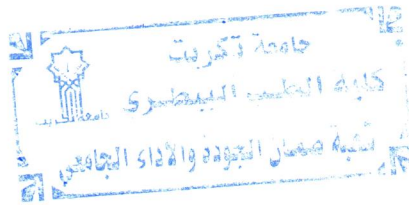 جامعة تكريت
كلية الطب البيطري
شعبة ضمان الجودة والاداء الجامعي
جامعة تكريت